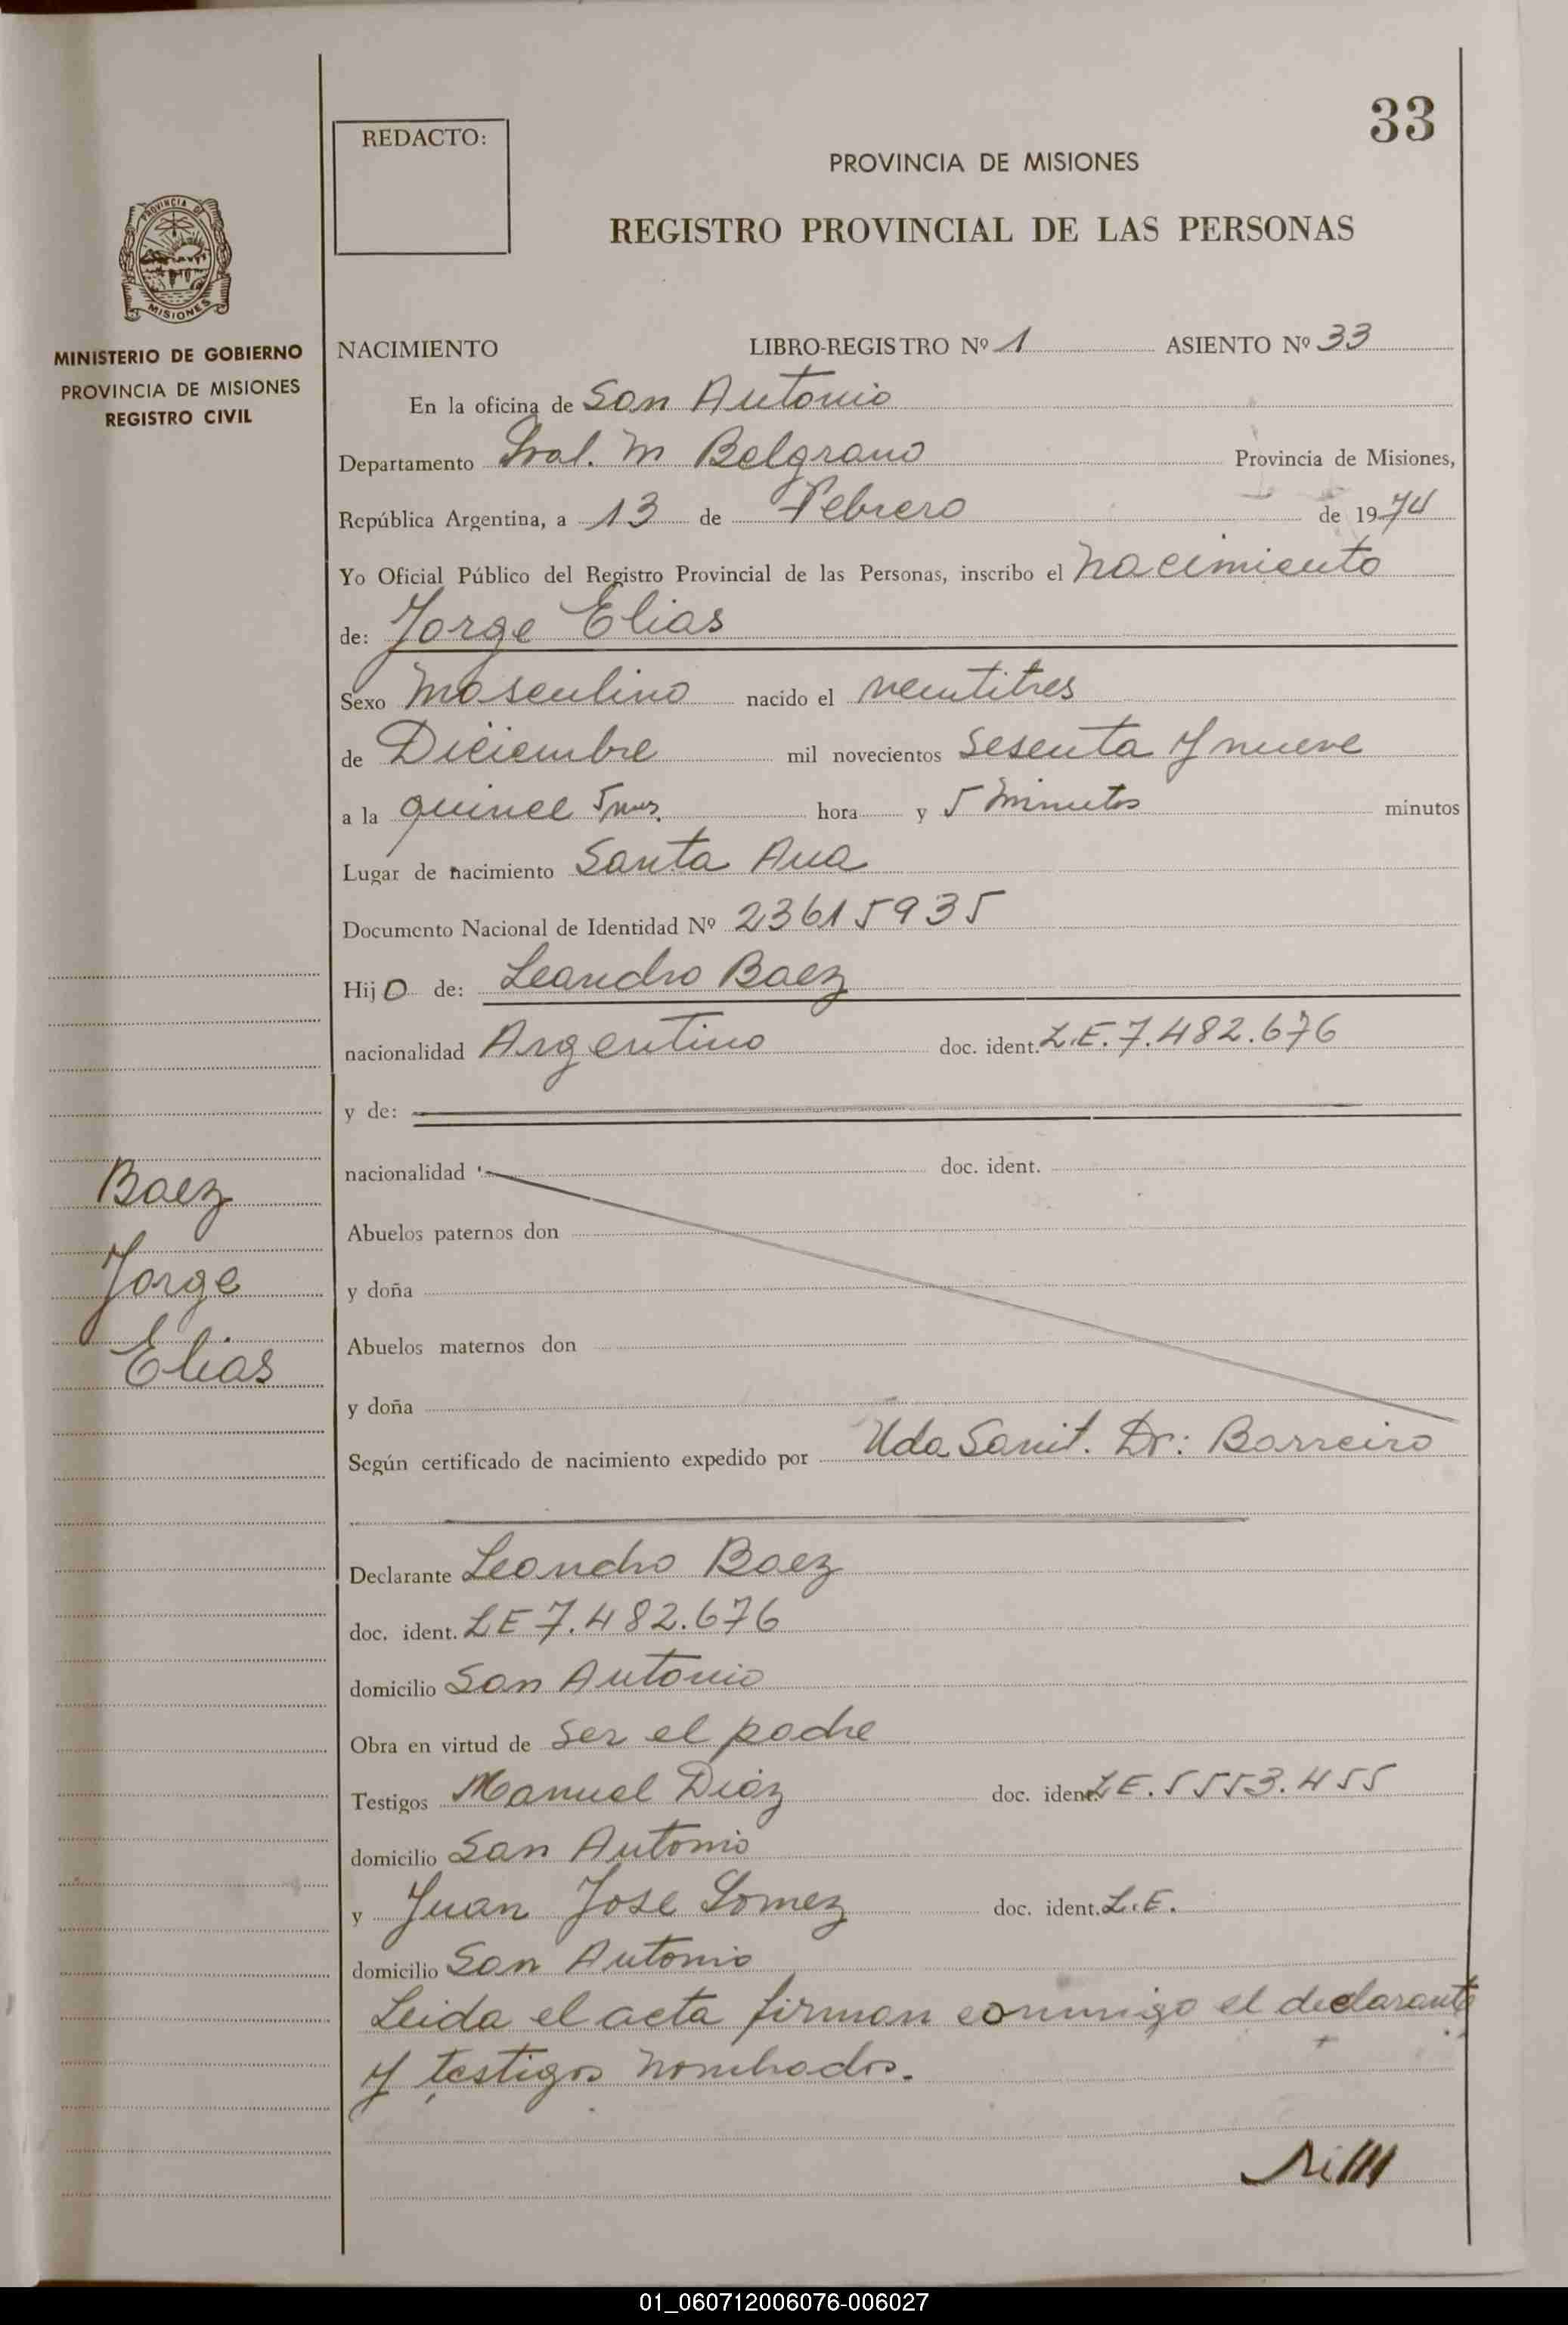 33
REDACTO:
PROVINCIA DE MISIONES
REGISTRO PROVINCIAL DE LAS PERSONAS
PROVINCIA DE
MISIONES
MINISTERIO DE GOBIERNO
PROVINCIA DE MISIONES
REGISTRO CIVIL
NACIMIENTO LIBRO-REGISTRO Nº 1 ASIENTO Nº 33
En la oficina de San Antonio
Departamento Gral. M Belgrano Provincia de Misiones,
República Argentina, a 13 de Febrero de 1974
Yo Oficial Público del Registro Provincial de las Personas, inscribo el nacimiento
de: Jorge Elias
Sexo Masculino nacido el veintitres
de Diciembre mil novecientos sesenta y nueve
a la quince hora y 5 minutos minutos
Lugar de nacimiento Santa Ana
Documento Nacional de Identidad Nº 23615935
Hijo de: Leandro Baez
nacionalidad Argentino doc. ident. L.E. 7.482.676
y de:
nacionalidad doc. ident.
Abuelos paternos don
y doña
Abuelos maternos don
y doña
Según certificado de nacimiento expedido por Uda Sanit. Dr: Barreiro
Baez
Jorge
Elias
Declarante Leandro Baez
doc. ident. LE 7.482.676
domicilio San Antonio
Obra en virtud de ser el padre
Testigos Manuel Diaz doc. ident. LE. 5553.455
domicilio San Antonio
y Juan Jose Gomez doc. ident. L.E.
domicilio San Antonio
Leida el acta firman conmigo el declarante
y testigos nombrados.
01_060712006076-006027